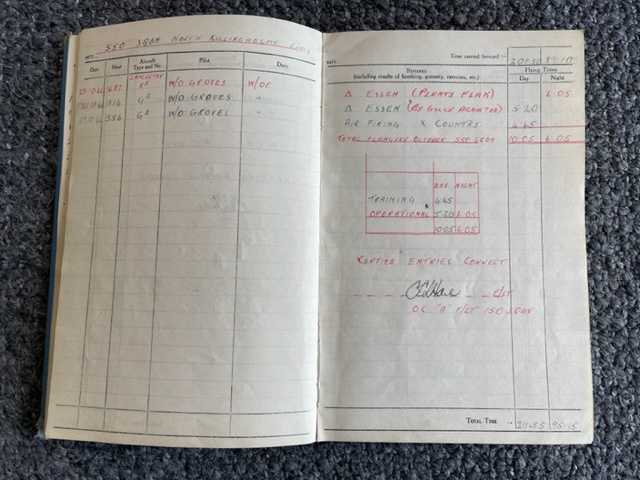 550 SQDN NORTH KILLINGHOLME LINCS
DATE
Date Hour Aircraft Type and No. Pilot Duty
LANCASTER
23.10.44 1631 K² W/O GROVES W/OP
1316 G² W/O GROVES "
1356 G² W/O GROVES "
DATE Time carried forward :— 201.50 89.10
REMARKS
(including results of bombing, gunnery, exercises, etc.)
Flying Times
Day Night
Δ ESSEN (PLENTY FLAK) 6.05
Δ ESSEN (BY GOLLY AGAIN TOO) 5.20
AIR FIRING X COUNTRY 4.45
TOTAL FLYING FOR OCTOBER 550 SQDN 10.05 6.05
DAY NIGHT
TRAINING 4.45
OPERATIONAL 5.20 6.05
10.05 6.05
CERTIFIED ENTRIES CORRECT
F/LT
O.C. "A" F/LT 150 SQDN
TOTAL TIME .. 211.55 95.15